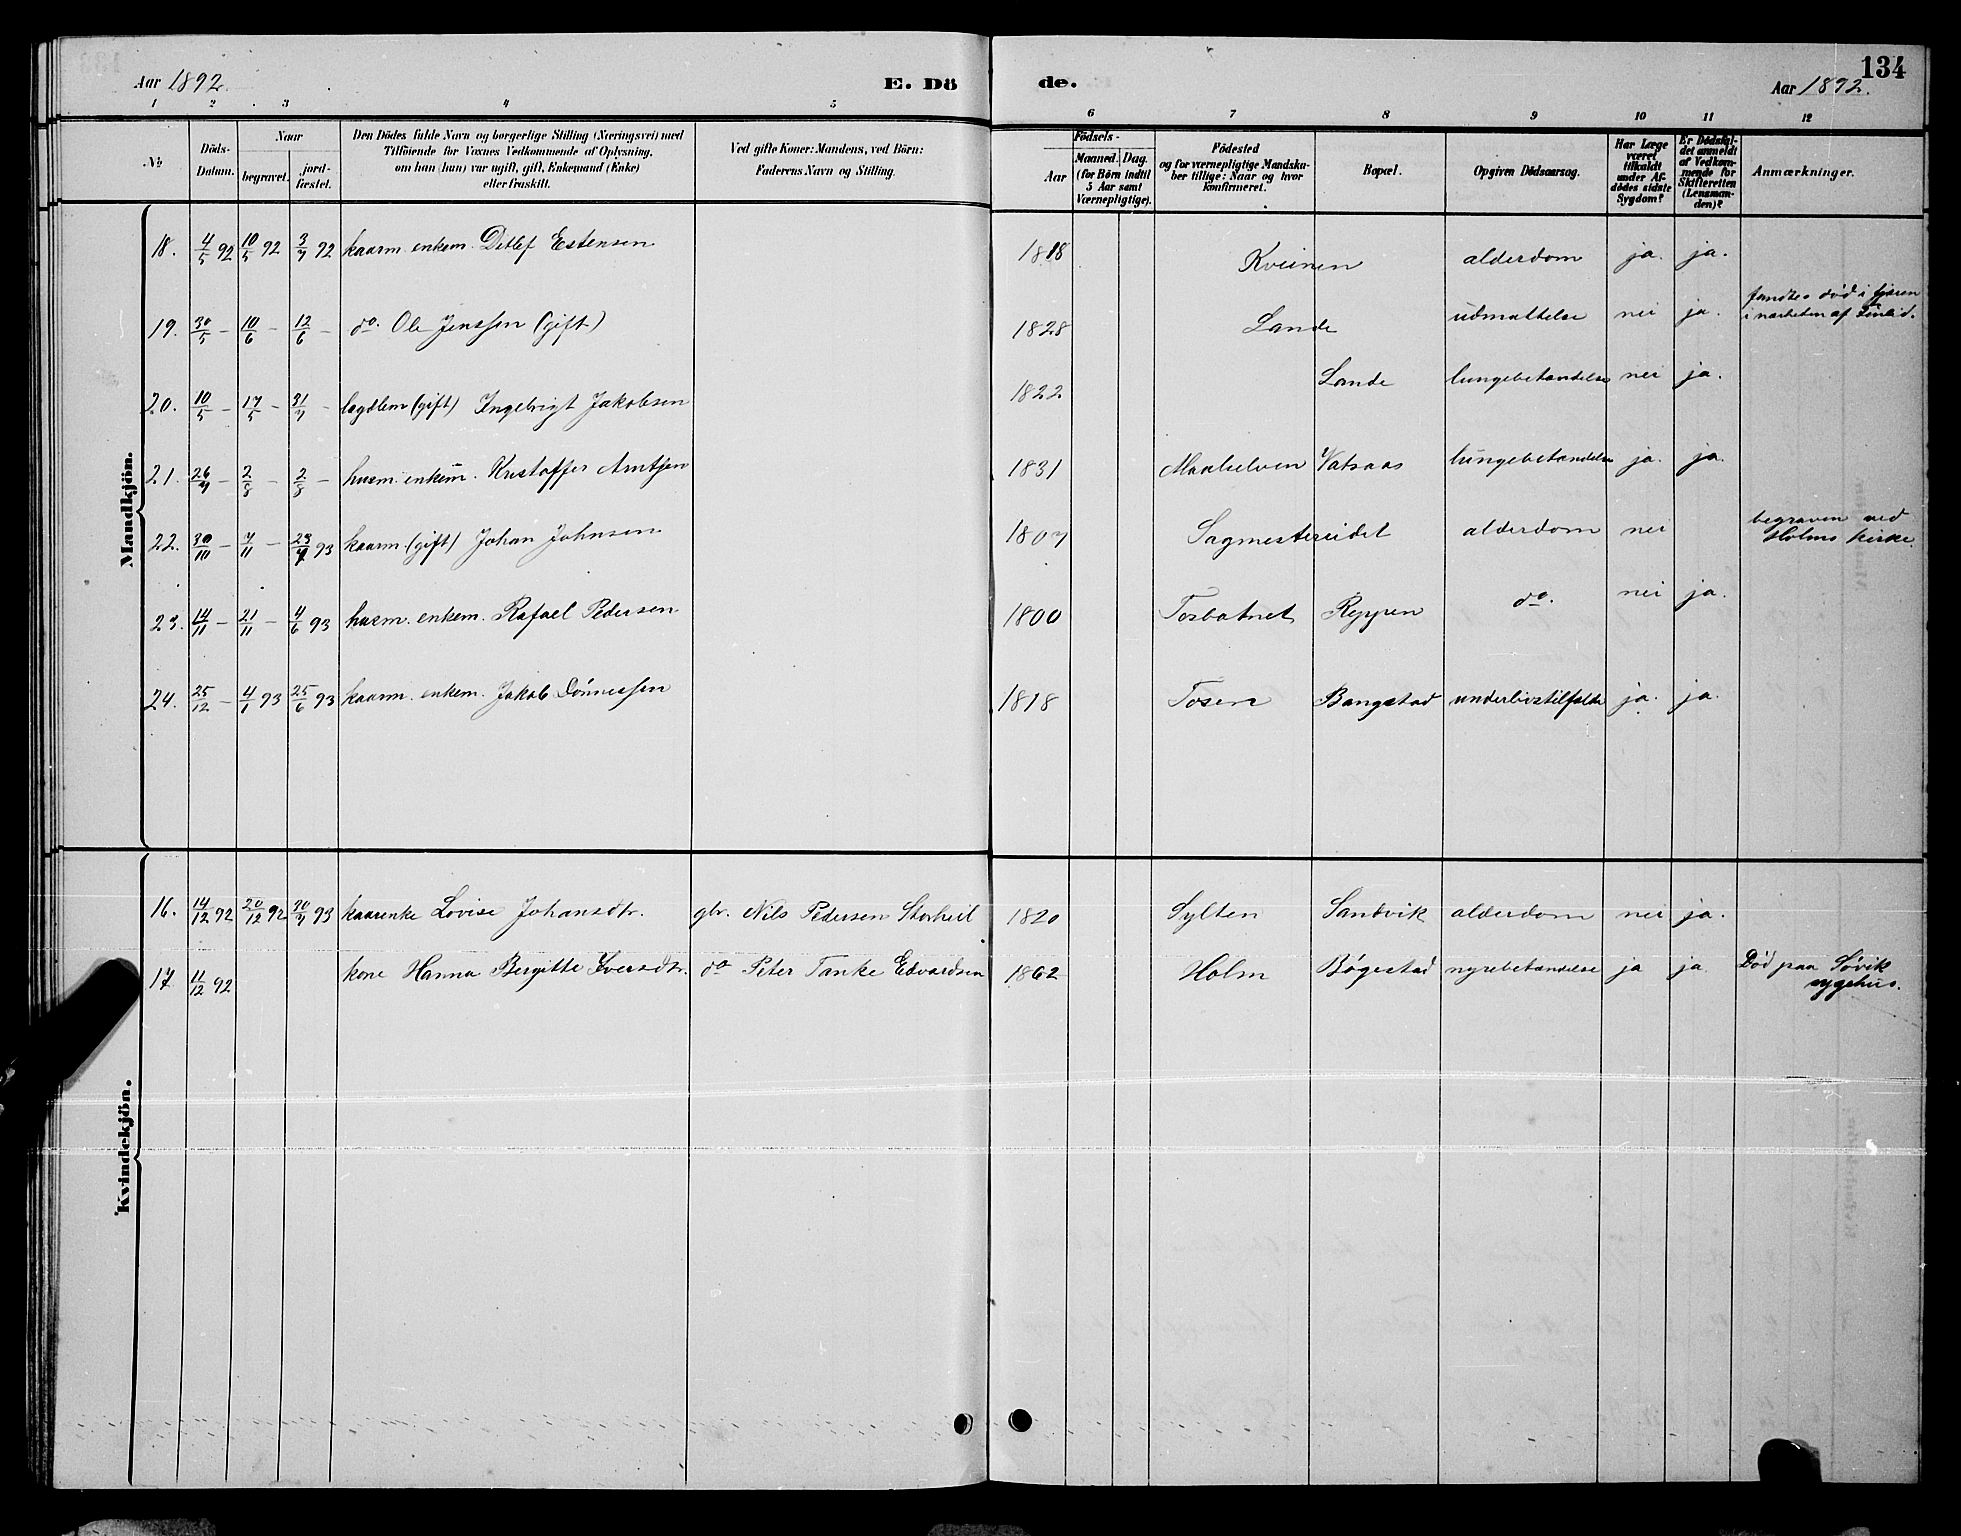 134
Aar 1892. E. Dö de. Aar 1892.
1 2 3 4 5 6 7 8 9 10 11 12
No.
Döds-
Datum.
Naar
begravet.
jord-
fæstet.
Den Dödes fulde Navn og borgerlige Stilling (Næringsvei) med
Tilföiende for Voxnes Vedkommende af Oplysning,
om han (hun) var ugift, gift, Enkemand (Enke)
eller fraskilt.
Ved gifte Koner: Mandens, ved Börn:
Faderens Navn og Stilling.
Födsels-
Aar
Maaned. Dag.
(for Börn indtil
5 Aar samt
Værnepligtige).
Födested
og for værnepligtige Mandska-
ber tillige: Naar og hvor
konfirmeret.
Bopæl.
Opgiven Dödsaarsag.
Har Læge
været
tilkaldt
under Af-
dödes sidste
Sygdom?
Er Dödsfal-
det anmeldt
af Vedkom-
mende for
Skifteretten
(Lensman-
den)?
Anmærkninger.
Mandkjön.
18. 4/5 92 10/5 92 3/7 92 kaarm. enkem. Detlef Estensen 1818 Kveinen alderdom ja. ja.
19. 30/5 – 10/6 – 12/6 – do. Ole Jenssen (gift) 1828 Lande udmattelse nei ja. fandtes død i fjæren
i nærheden af
20. 10/5 – 17/5 – 31/7 – lægdlem (gift) Ingebrigt Jakobsen 1822 Lande lungebetændelse nei ja.
21. 26/7 – 2/8 – 2/8 – husm. enkem. Kristoffer Arntsen 1831 Maalselven Vatsaas lungebetændelse ja. ja.
22. 30/10 – 7/11 – 23/7 93 kaarm (gift) Johan Johnsen 1807 Sagmestereidet alderdom nei begraven ved
Holms kirke.
23. 14/11 – 21/11 – 4/6 93 husm. enkem. Rafael Pedersen 1800 Tosbotnet Reppen do. nei ja.
24. 25/12 – 4/1 93 25/6 93 kaarm. enkem. Jakob Dønnessen 1818 Tosen Bangstad underlivstilfælde ja. ja.
Kvindekjön.
16. 14/12 92 20/12 92 30/7 93 kaarenke Lovise Johansdtr. gbr. Nils Pedersen Storheil 1820 Sylten Sandvik alderdom nei ja.
17 11/12 92 kone Hanna Bergitte Iversdtr. do Peter Tanke Edvardsen 1862 Holm Bøgestad nyrebetændelse ja ja. Død paa Søvik
sygehus.